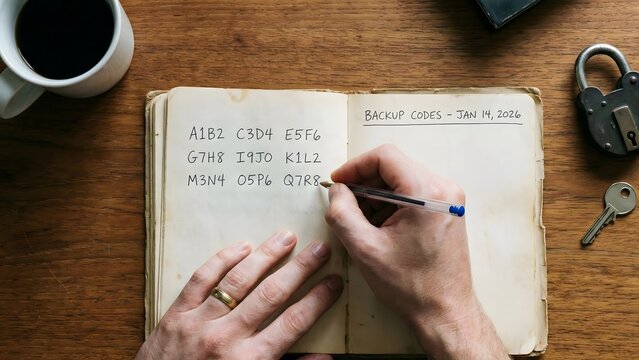 A1B2 C3D4 E5F6
G7H8 I9J0 K1L2
M3N4 O5P6 Q7R8
BACKUP CODES - JAN 14, 2026